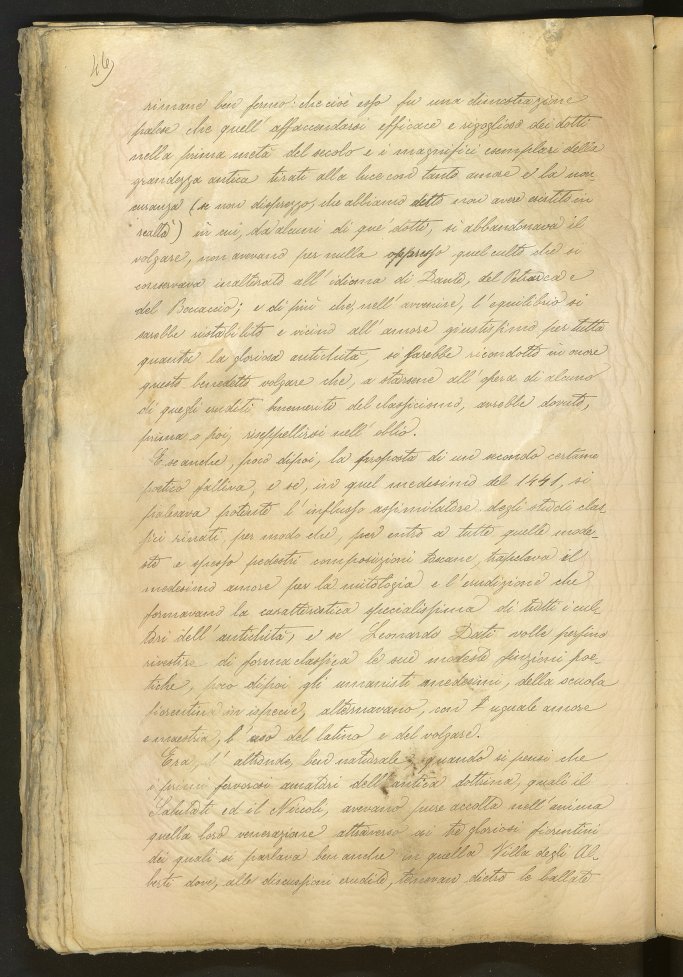 46)
rimane ben fermo: che cioè esso fu una dimostrazione
palese che quell' affaccendarsi efficace e rigoglioso dei dotti
nella prima metà del secolo e i magnifici esemplari della
grandezza antica tirati alla luce con tanto amore e la non-
curanza (se non disprezzo, che abbiamo detto non avere esistito in
realtà) in cui, da alcuni di que' dotti, si abbandonava il
volgare, non avevano per nulla oppresso quel culto che si
conservava inalterato all' idioma di Dante, del Petrarca e
del Boccaccio; e di più che, nell' avvenire, l' equilibrio si
sarebbe ristabilito e vicino all' amore giustissimo per tutta
quanta la gloriosa antichità, si sarebbe ricondotto in onore
questo benedetto volgare che, a starsene all' opera di alcuno
di quegli eruditi benemeriti del classicismo, avrebbe dovuto,
prima o poi, riseppellirsi nell' oblio.
E se anche, poco dipoi, la proposta di un secondo certame
poetico falliva, e se, in quel medesimo del 1441, si
palesava potente l' influsso assimilatore degli studi clas-
sici rinati, per modo che, per entro a tutte quelle mode-
ste e spesso pedestri composizioni toscane, trapelava il
medesimo amore per la mitologia e l' erudizione che
formavano la caratteristica specialissima di tutti i cul-
tori dell' antichità, e se Leonardo Dati volle persino
rivestire di forma classica le sue modeste finzioni poe-
tiche, poco dipoi gli umanisti medesimi, della scuola
fiorentina in ispecie, alternavano, con uguale amore
e maestria, l' uso del latino e del volgare.
Era, l' altronde, ben naturale quando si pensi che
i primi fervorosi amatori dell' antica dottrina, quali il
Salutati ed il Niccoli, avevano pure accolta nell' anima
quella loro venerazione attraverso ai tre gloriosi fiorentini
dei quali si parlava ben anche in quella Villa degli Al-
berti dove, alle discussioni erudite, tenevan dietro le ballate